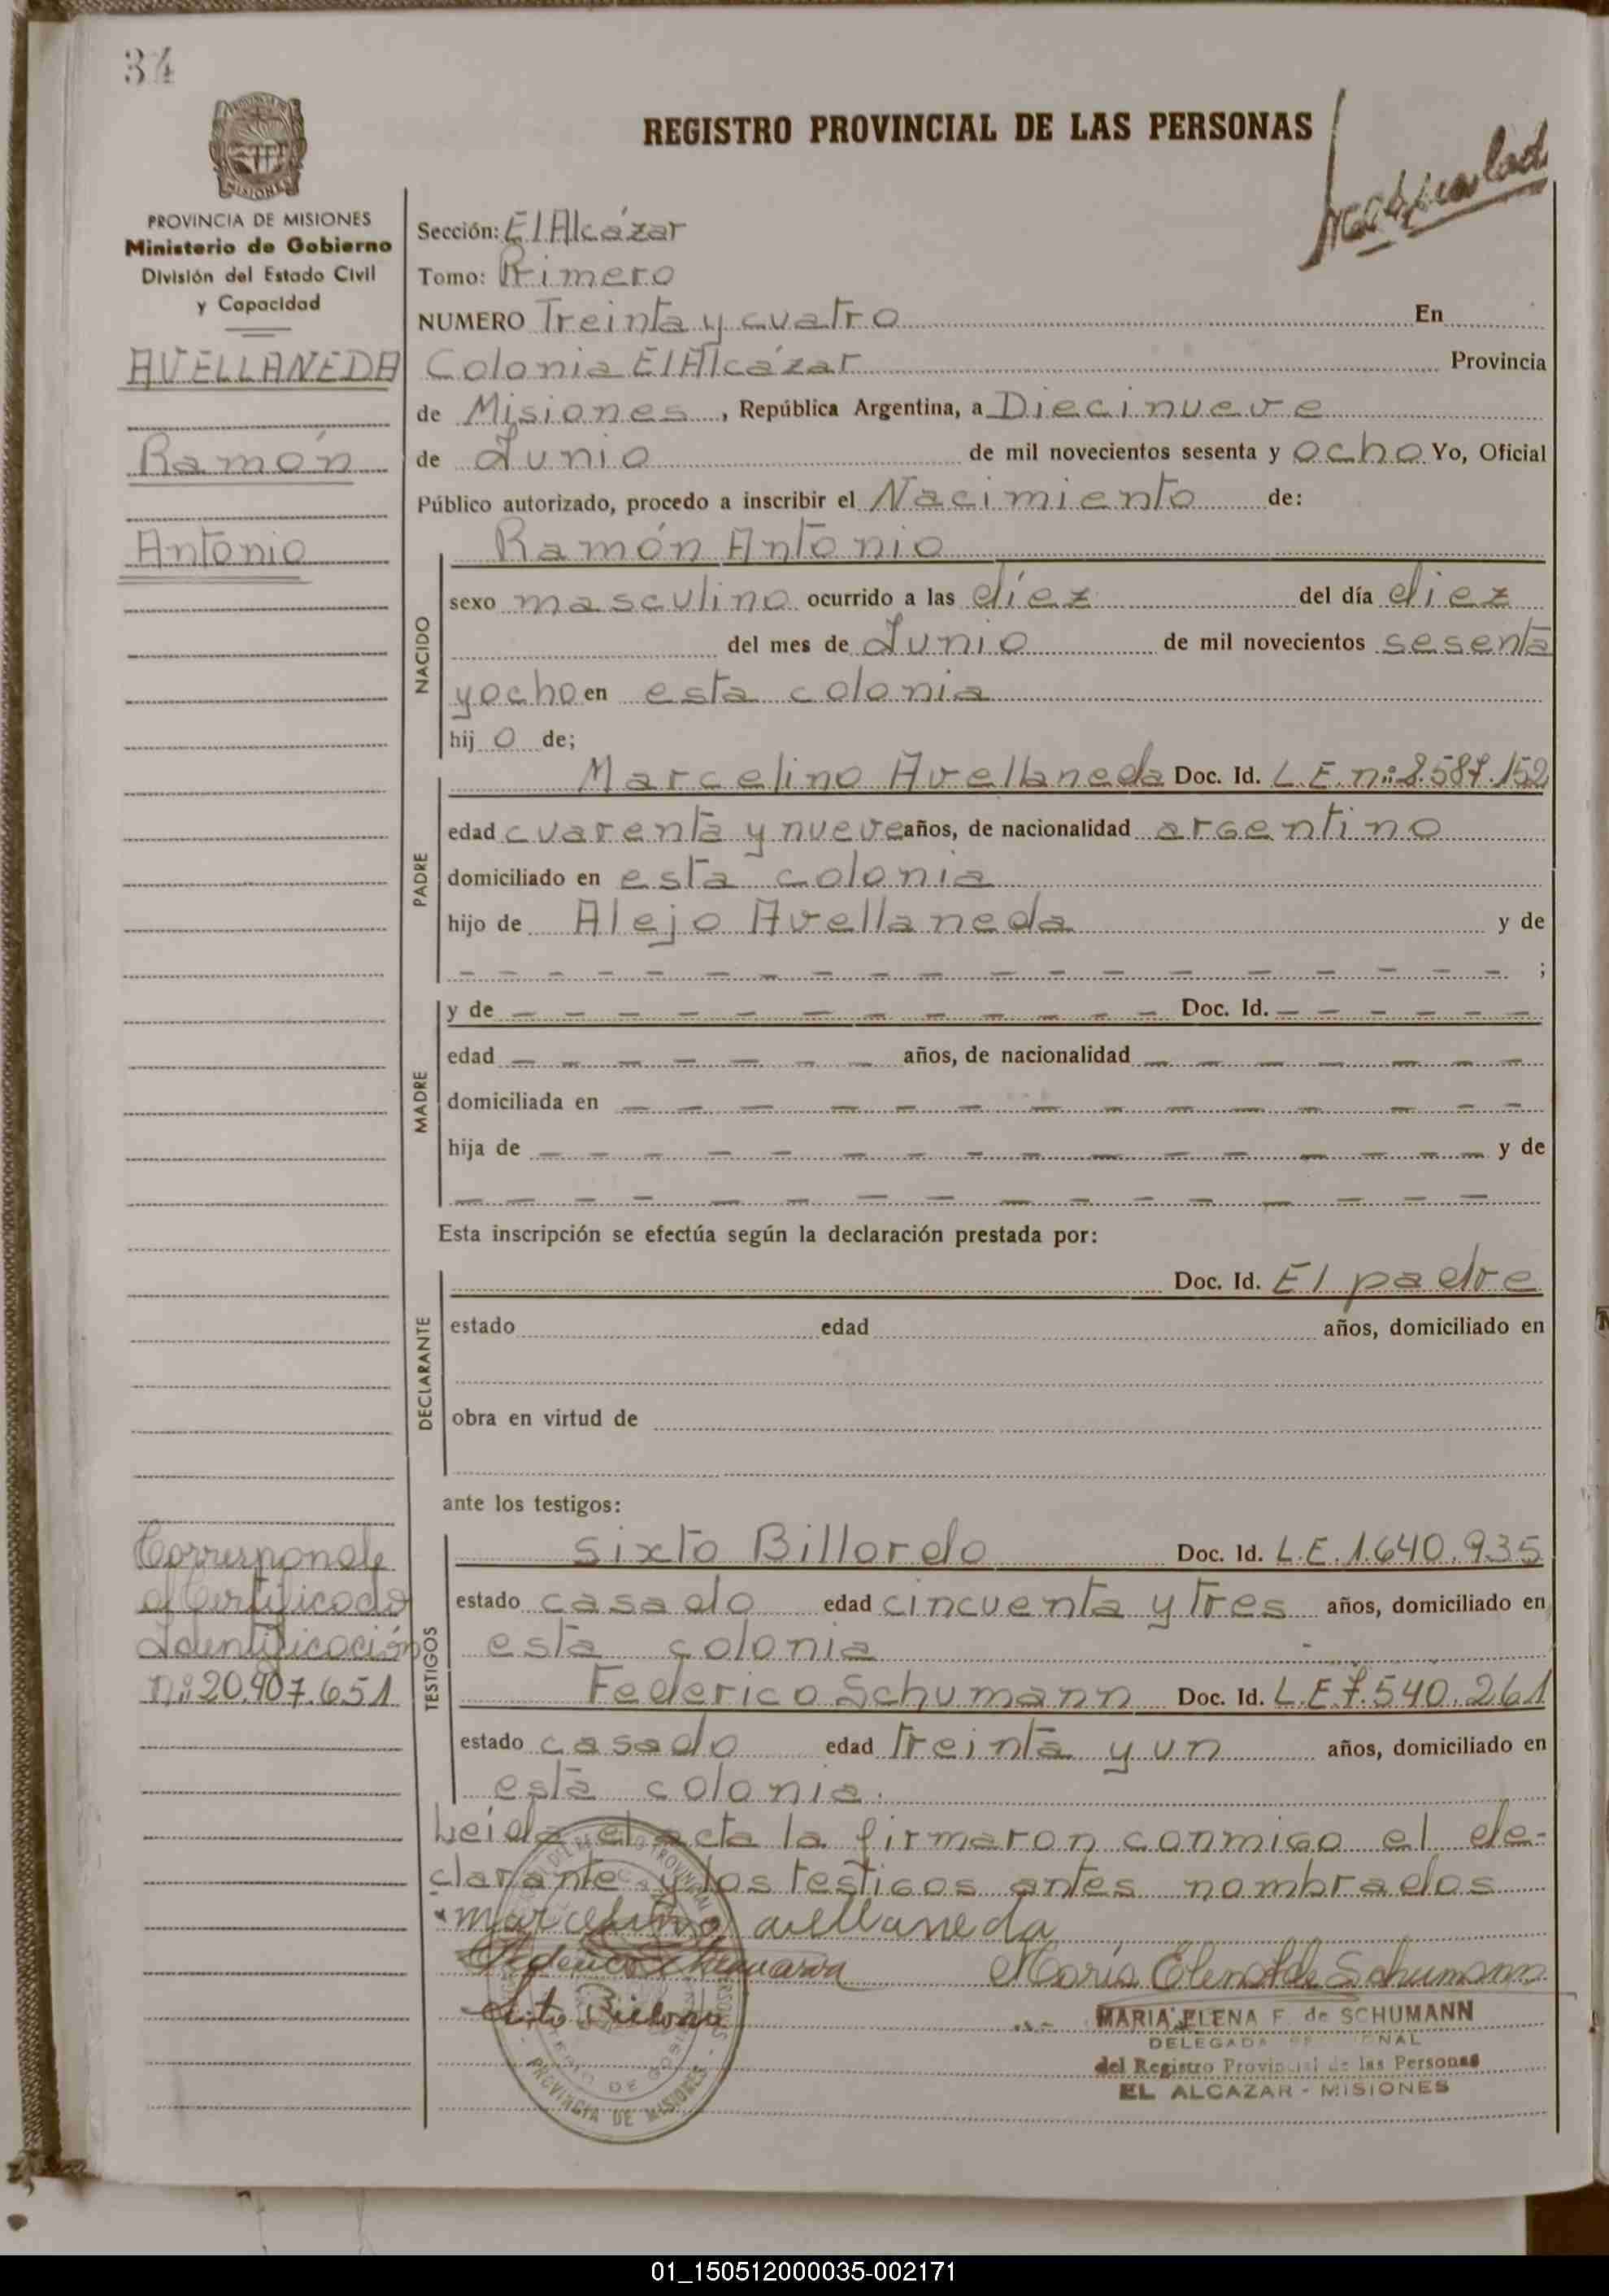 34
REGISTRO PROVINCIAL DE LAS PERSONAS
MISIONES
PROVINCIA DE MISIONES
Ministerio de Gobierno
División del Estado Civil
y Capacidad
AVELLANEDA
Ramón
Antonio
Sección: El Alcázar
Tomo: Primero
NUMERO Treinta y cuatro En
Colonia El Alcázar Provincia
de Misiones, República Argentina, a Diecinueve
de Junio de mil novecientos sesenta y ocho Yo, Oficial
Público autorizado, procedo a inscribir el Nacimiento de:
Ramón Antonio
NACIDO
sexo masculino ocurrido a las diez del día diez
del mes de Junio de mil novecientos sesenta
y ocho en esta colonia
hij o de;
PADRE
Marcelino Avellaneda Doc. Id. L.E. nº: 8.587.152
edad cuarenta y nueve años, de nacionalidad argentino
domiciliado en esta colonia
hijo de Alejo Avellaneda y de
— — — — — — — — — — — — — — — — — — ;
MADRE
y de — — — — — — — — — — — — Doc. Id. — — — — — —
edad — — — — — — — años, de nacionalidad — — — — — — — —
domiciliada en — — — — — — — — — — — — — — —
hija de — — — — — — — — — — — — — — — — y de
— — — — — — — — — — — — — — — — —
Esta inscripción se efectúa según la declaración prestada por:
DECLARANTE
Doc. Id. El padre
estado edad años, domiciliado en
obra en virtud de
ante los testigos:
TESTIGOS
Sixto Billordo Doc. Id. L.E. 1.640.935
estado casado edad cincuenta y tres años, domiciliado en
esta colonia
Federico Schumann Doc. Id. L.E 7.540.261
estado casado edad treinta y un años, domiciliado en
esta colonia.
Corresponde
al Certificado
Identificación
nº: 20.907.651
Leida el acta la firmaron conmigo el de-
clarante y los testigos antes nombrados
marcelino avellaneda
Federico Schumann María Elena F de Schumann
Sixto Billordo
MARIA ELENA F. de SCHUMANN
DELEGADA
del Registro Provincial de las Personas
EL ALCAZAR - MISIONES
PROVINCIA DE MISIONES
01_150512000035-002171